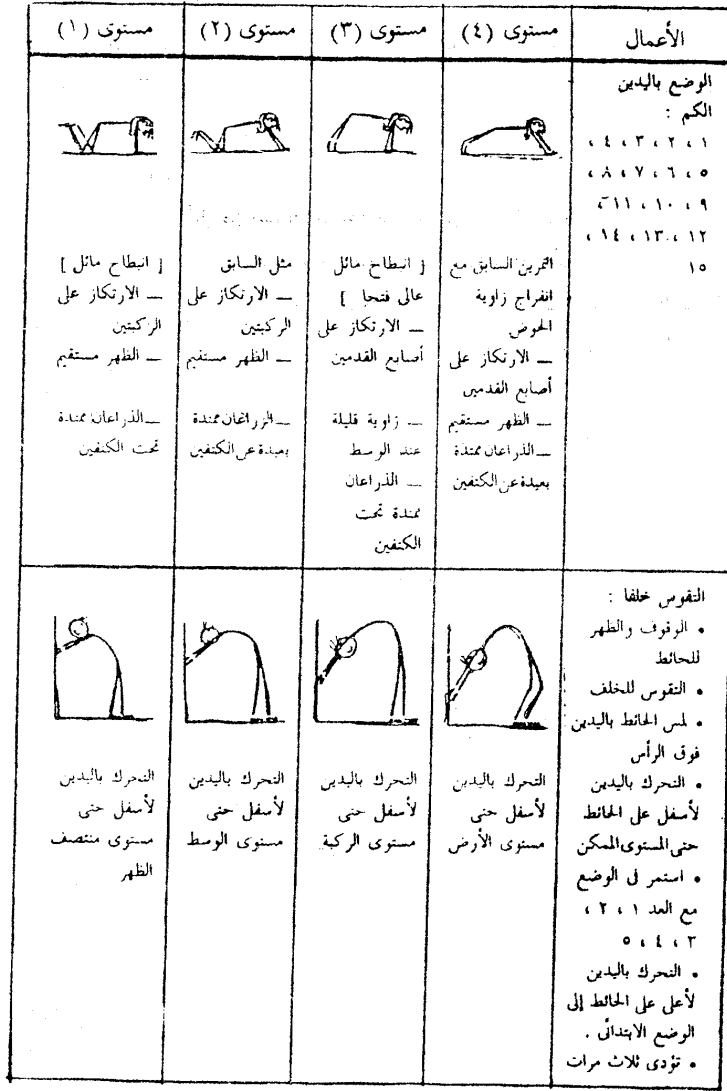 الأعمال
مستوى (٤)
مستوى (٣)
مستوى (٢)
مستوى (١)
الوضع باليدين
الكم :
١ ، ٢ ، ٣ ، ٤ ،
٥ ، ٦ ، ٧ ، ٨ ،
٩ ، ١٠ ، ١١ ،
١٢ ، ١٣ ، ١٤ ،
١٥
التمرين السابق مع
انفراج زاوية
الحوض
ــ الارتكاز على
أصابع القدمين
ــ الظهر مستقيم
ــ الذراعان ممتدة
بعيدة عن الكتفين
[ انبطاح مائل
عالى فتحا ]
ــ الارتكاز على
أصابع القدمين
ــ زاوية قليلة
عند الوسط
ــ الذراعان
ممتدة تحت
الكتفين
مثل السابق
ــ الارتكاز على
الركبتين
ــ الظهر مستقيم
ــ الزراغان ممتدة
بعيدة عن الكتفين
[ انبطاح مائل ]
ــ الارتكاز على
الركبتين
ــ الظهر مستقيم
ــ الذراعان ممتدة
تحت الكتفين
التقوس خلفا :
• الوقوف والظهر
للحائط
• التقوس للخلف
• لمس الحائط باليدين
فوق الرأس
• التحرك باليدين
لأسفل على الحائط
حتى المستوى الممكن
• استمر فى الوضع
مع العد ١ ، ٢ ،
٣ ، ٤ ، ٥
• التحرك باليدين
لأعلى على الحائط إلى
الوضع الابتدائى .
• تؤدى ثلاث مرات
التحرك باليدين
لأسفل حتى
مستوى الأرض
التحرك باليدين
لأسفل حتى
مستوى الركبة
التحرك باليدين
لأسفل حتى
مستوى الوسط
التحرك باليدين
لأسفل حتى
مستوى منتصف
الظهر